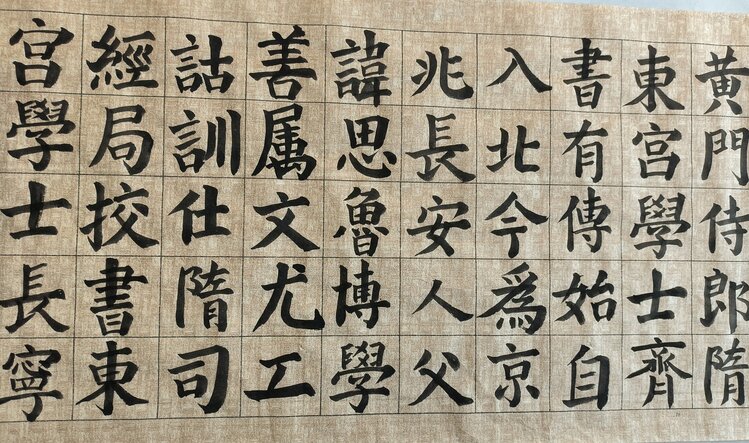 黄門侍郎隋
東宮學士齊
書有傳始自
入北今為京
兆長安人父
諱思魯博學
善属文尤工
詁訓仕隋司
經局挍書東
宮學士長寧